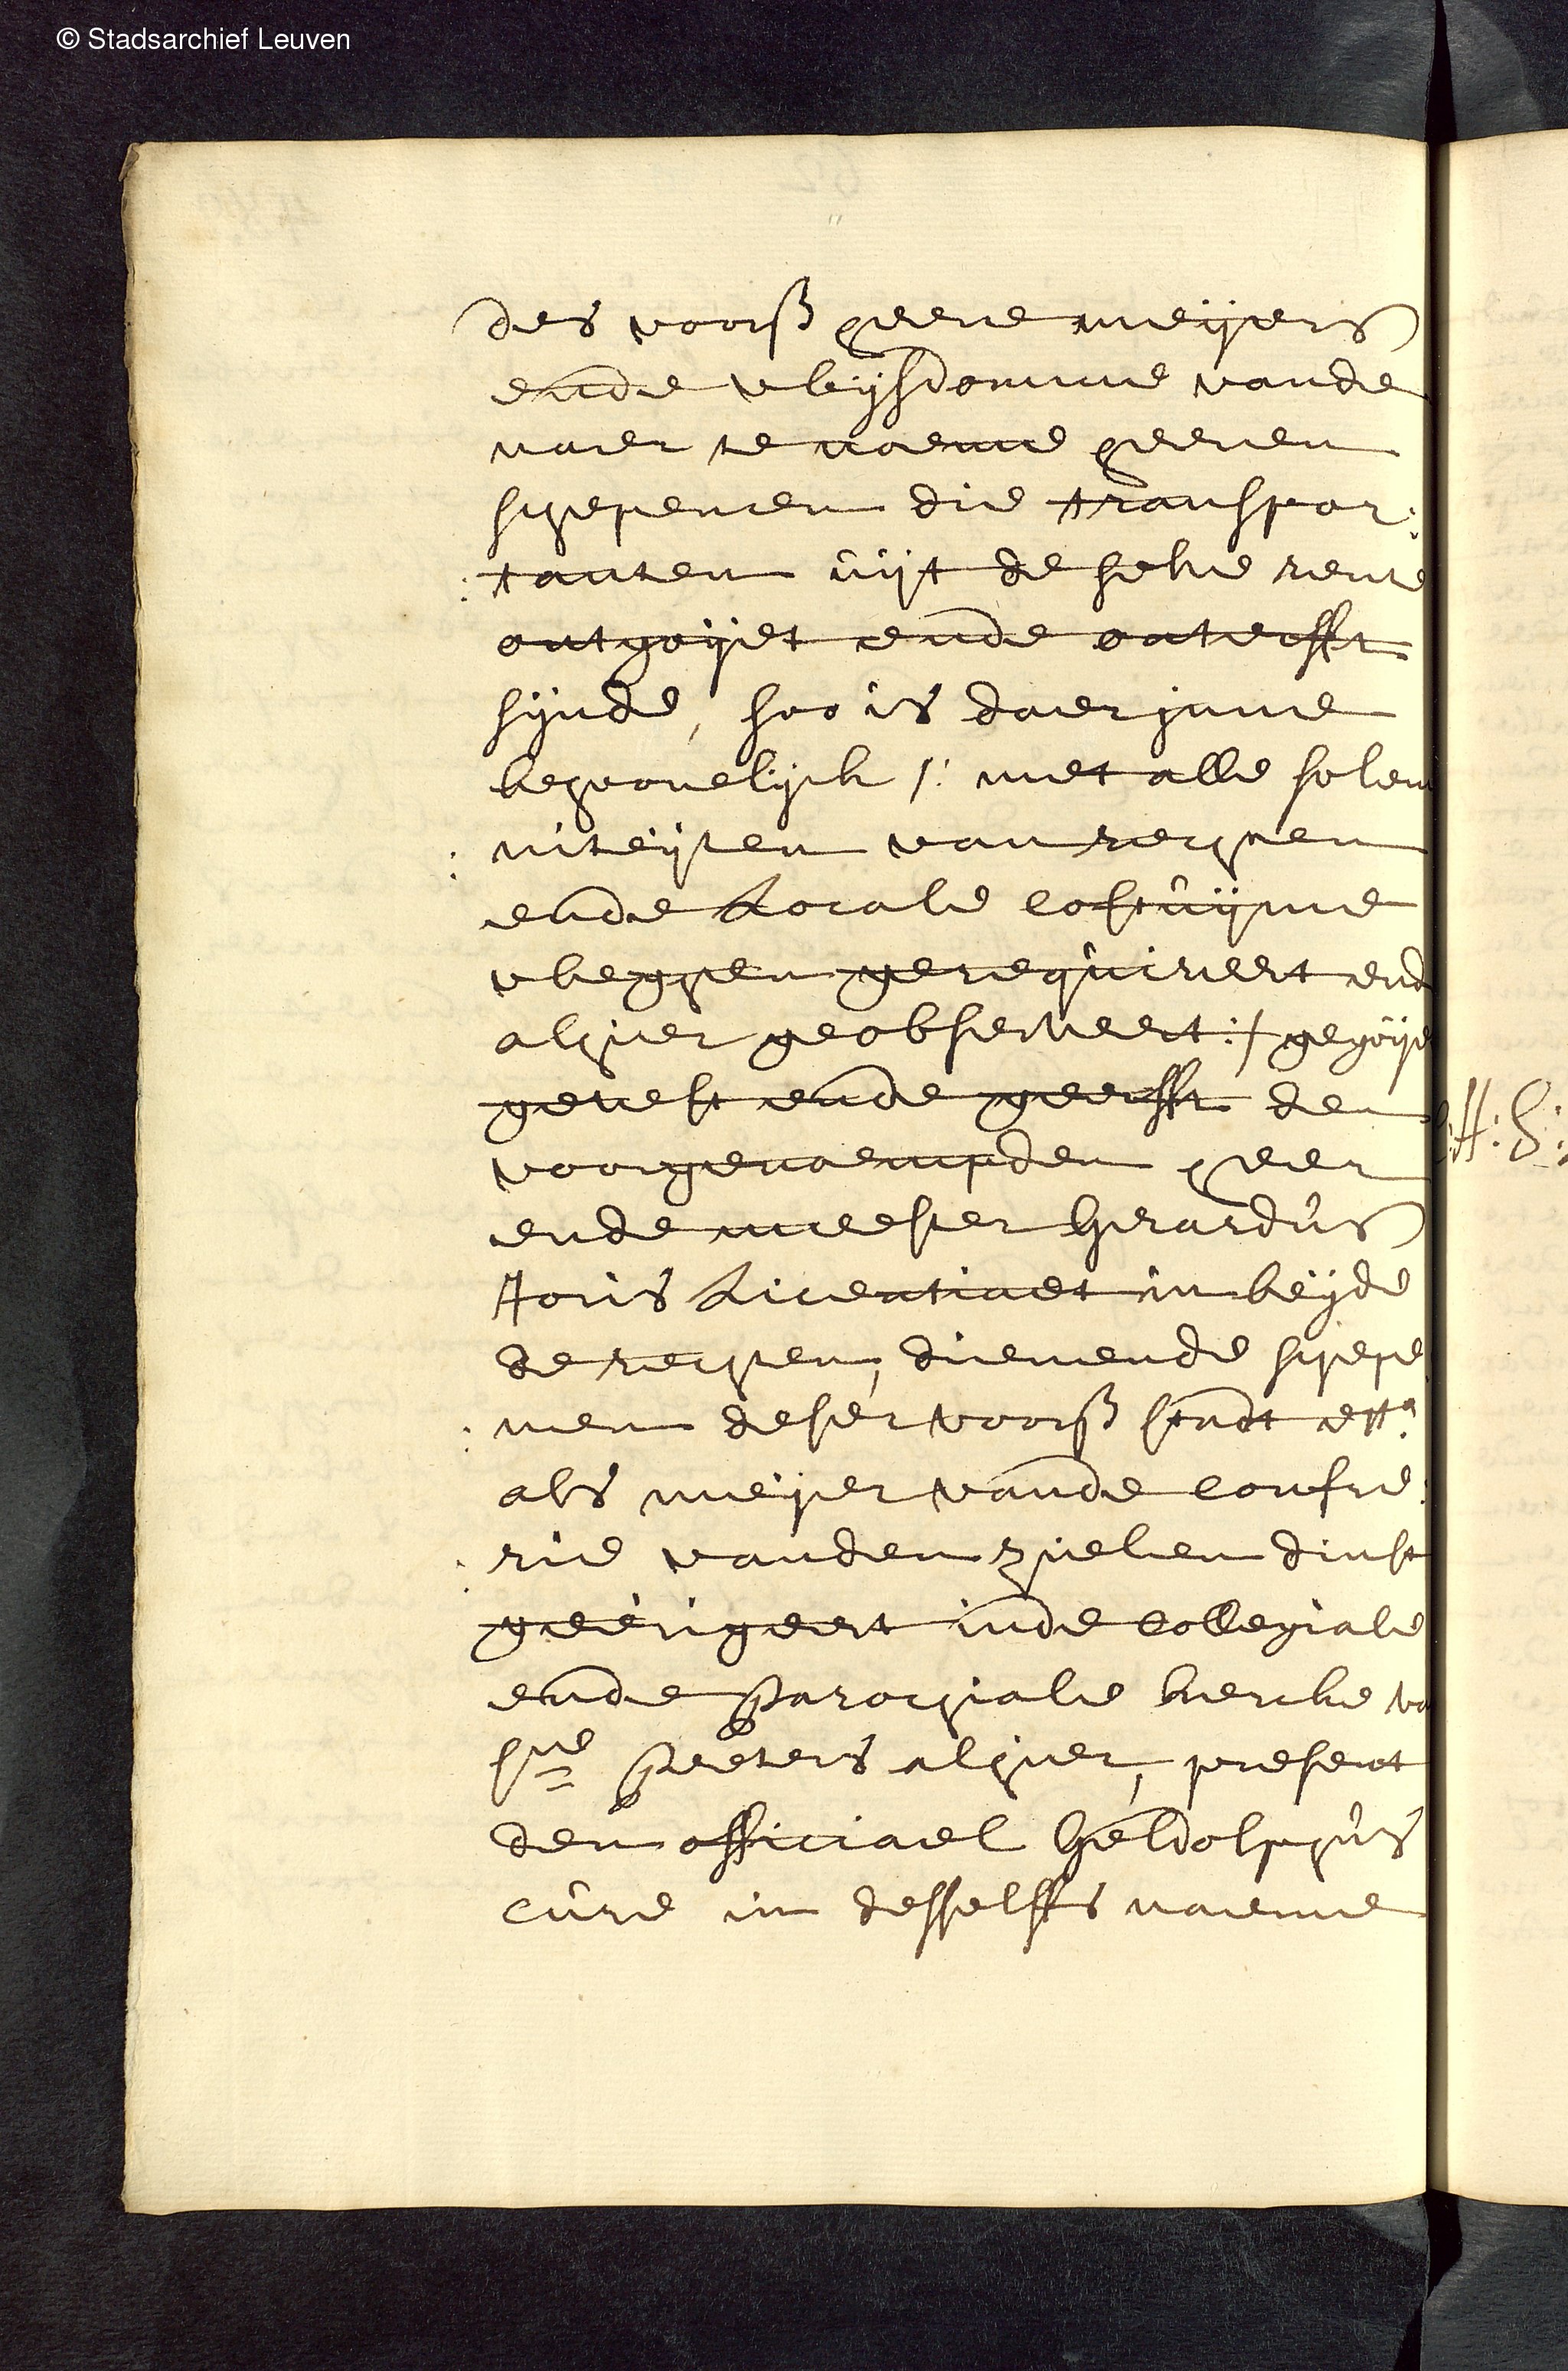 © Stadsarchief Leuven
des voorß heere meÿers
ende vleÿsdomme vande
naer te noeme heeren
schepenen die transpor:
:tanten uÿt de selve rente
ontgoÿet ende onterfft
sÿnde, soo is daer inne
behoorelÿck /: met alle solem
:niteÿten van rechten
ende Locale costuÿme
alhier geobserveert :/ gegoÿe
gevest ende geerfft den
voorgenoempden heer
ende meester Gerardus
Joris Licentiaet in beÿde
de rechten, dienende schepe
:nen deser voorß stadt etta.
als meÿer vande confre:
:rie vanden zielen dinst
geërigeert inde collegiale
ende Parochiale kercke va
Ste Peeters alhier, present
den officiael Geldolphus
Cüre in desselffs naeme
:H:S: